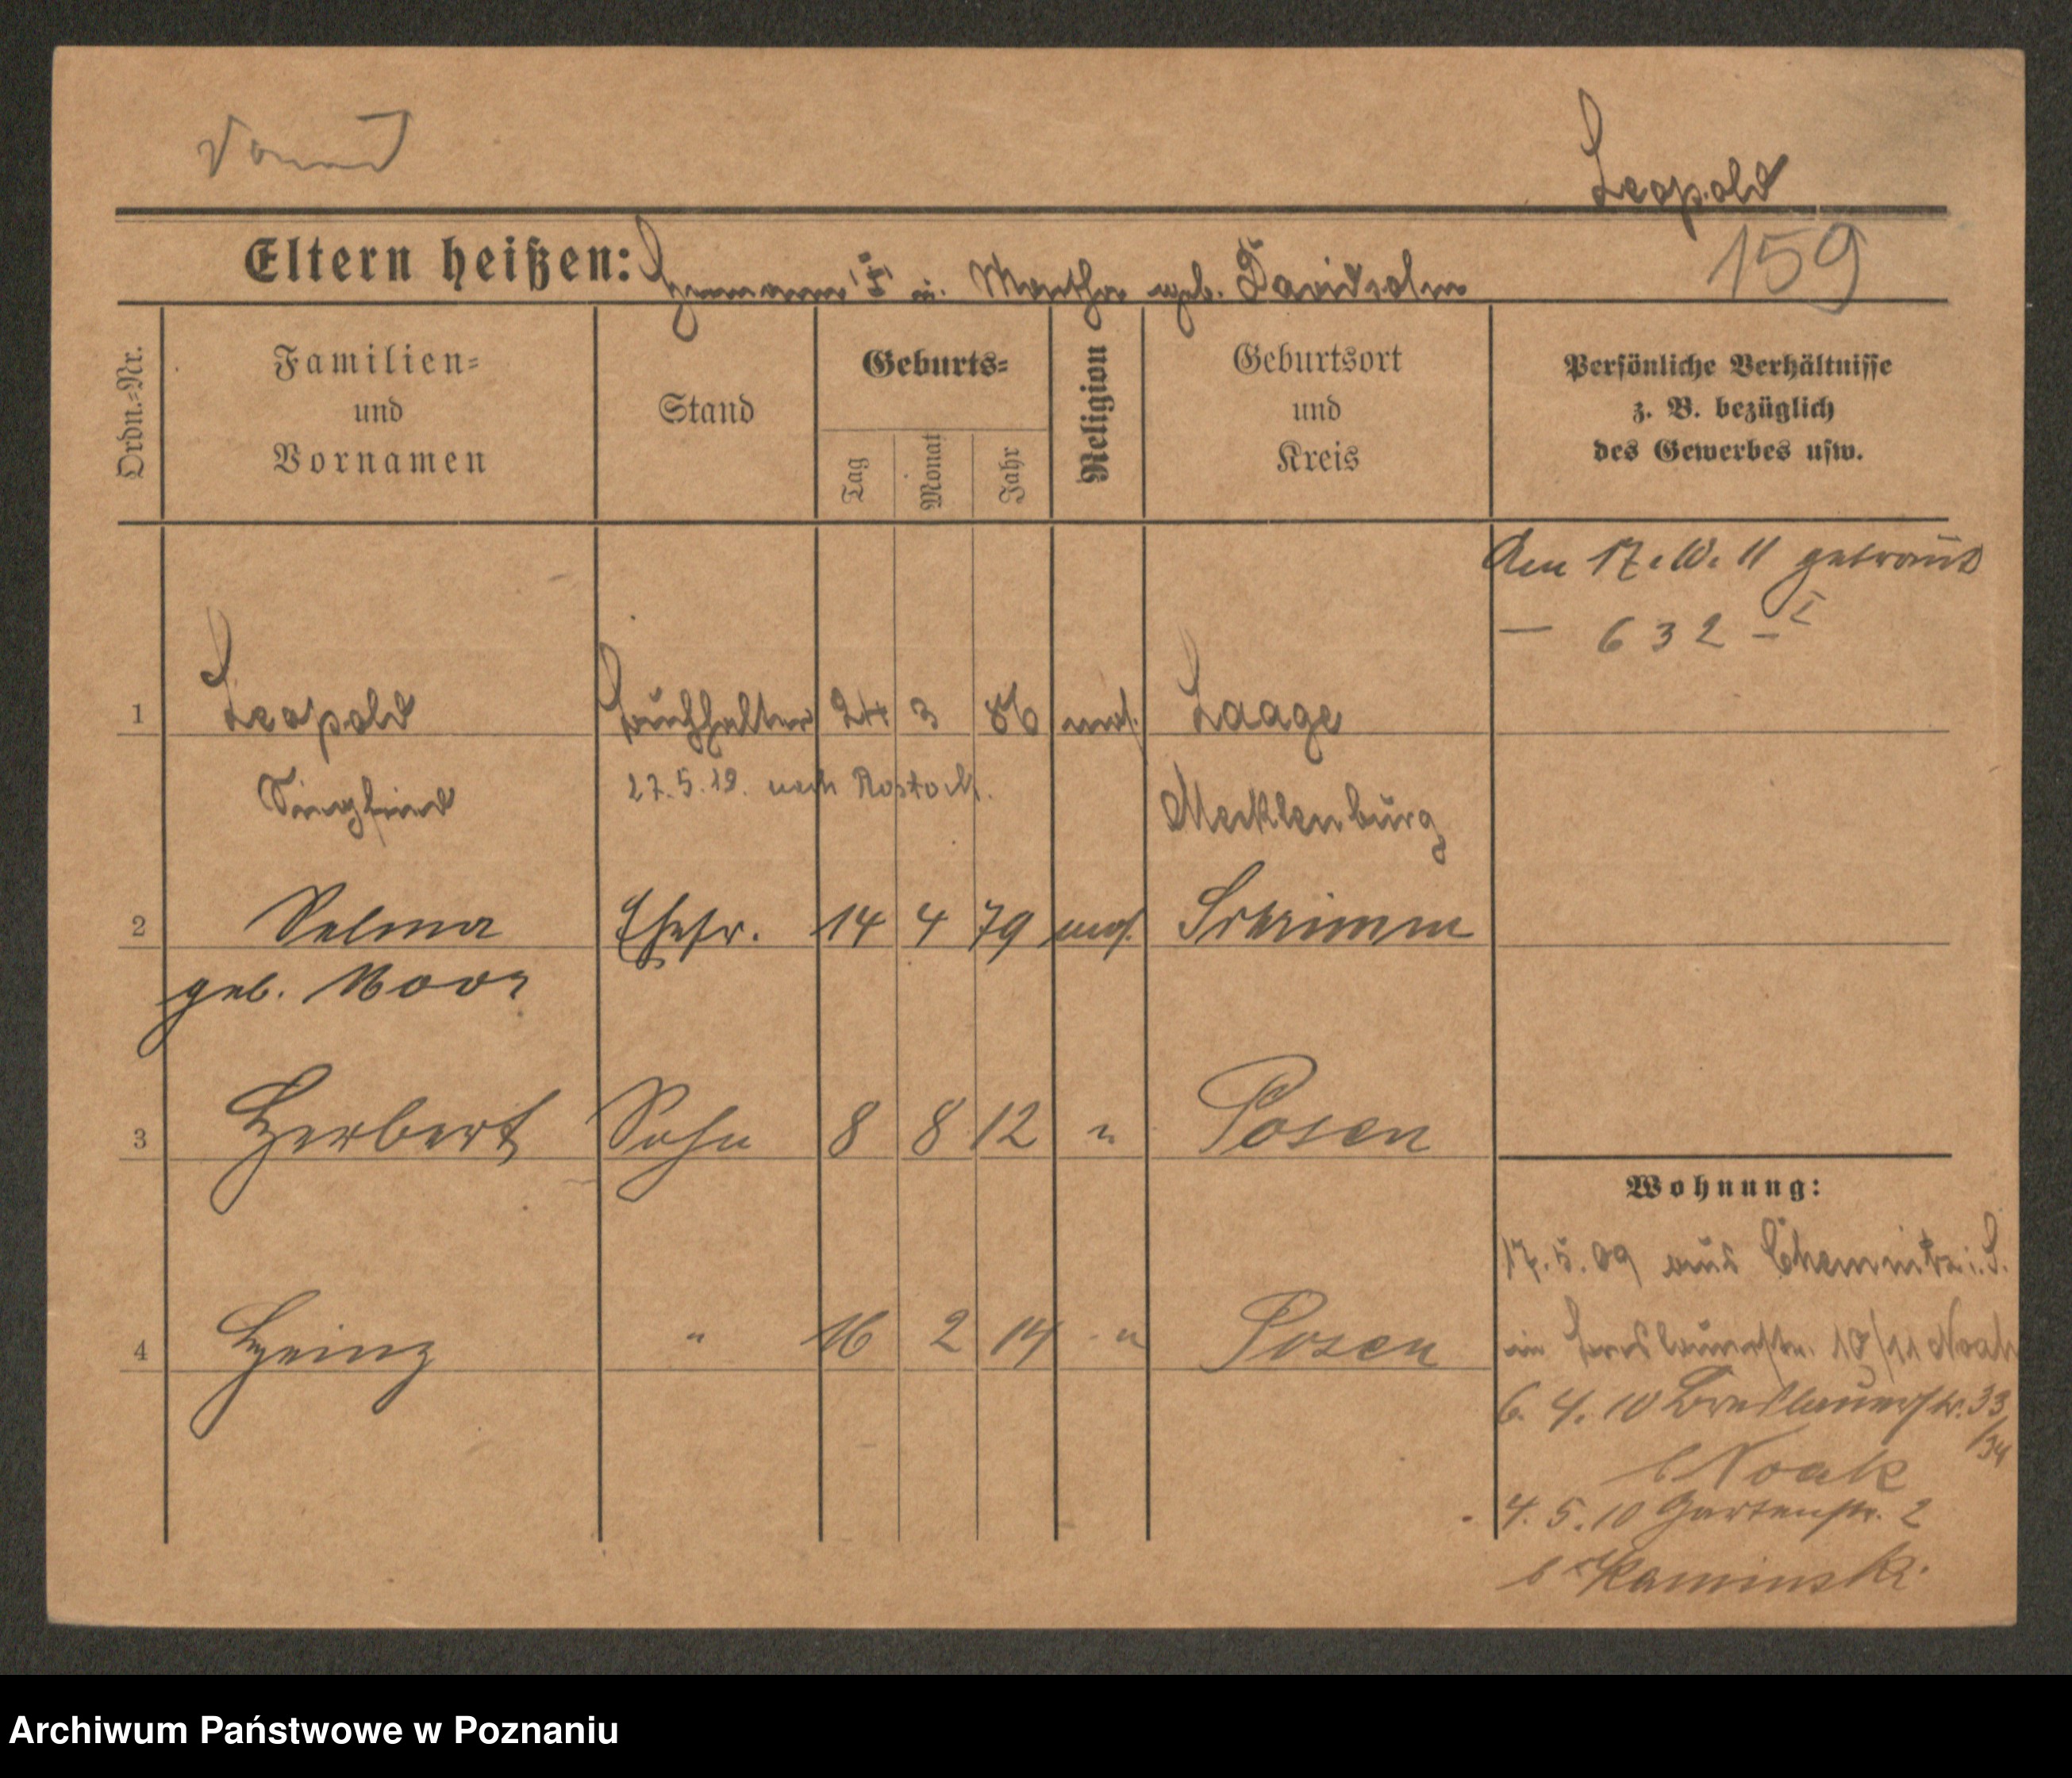 Leopold
159
Eltern heißen: Hermann u. Martha geb. Davidsohn
Ordn.=Nr.
Familien=
und
Vornamen
Stand
Geburts=
Tag
Monat
Jahr
Religion
Geburtsort
und
Kreis
Persönliche Verhältnisse
z. B. bezüglich
des Gewerbes usw.
Am 17.10.11 getraut
— 632 – I
1 Leopold Buchhalter 24 3 86 mos. Laage
Siegfried 27.5.19. nach Rostock. Mecklenburg
2 Selma Ehefr. 14 4 79 mos. Schrimm
geb. Moor
3 Herbert Sohn 8 8 12 " Posen
Wohnung:
17.5.09 aus Chemnitz i. S.
in Breslauerstr. 10/11 Noak
4 Heinz " 16 2 14 " Posen
6.4.10 Breslauerstr. 33/34
b Noak
4.5.10 Gartenstr. 2
b Kaminski
Archiwum Państwowe w Poznaniu